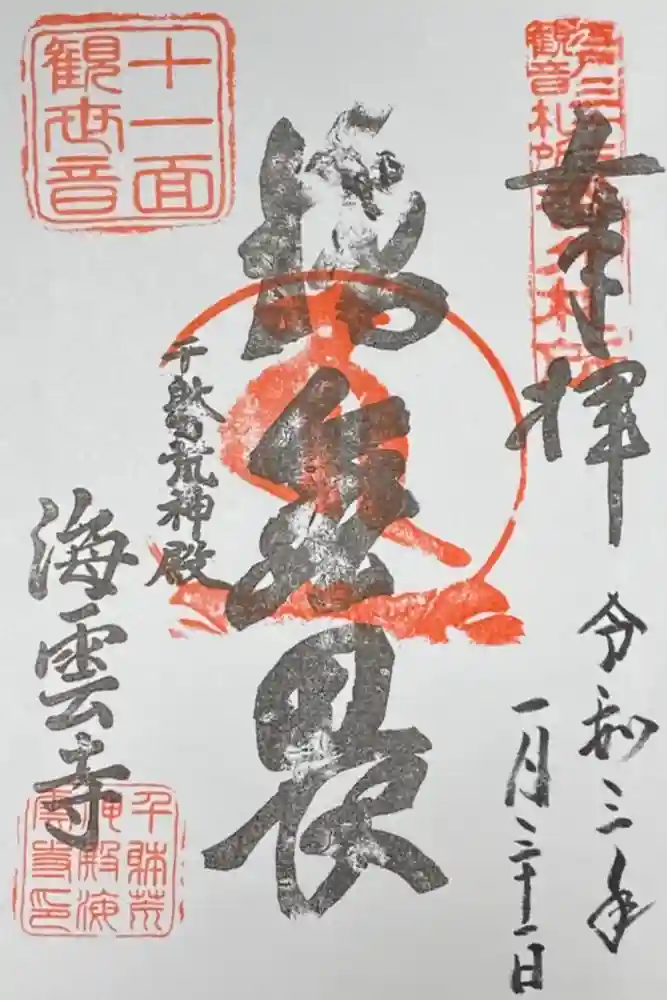 観音札所
奉拝
令和三年
一月三十一日
施無畏
千躰荒神殿
十一面
観世音
海雲寺
千躰荒
神殿海
雲寺印